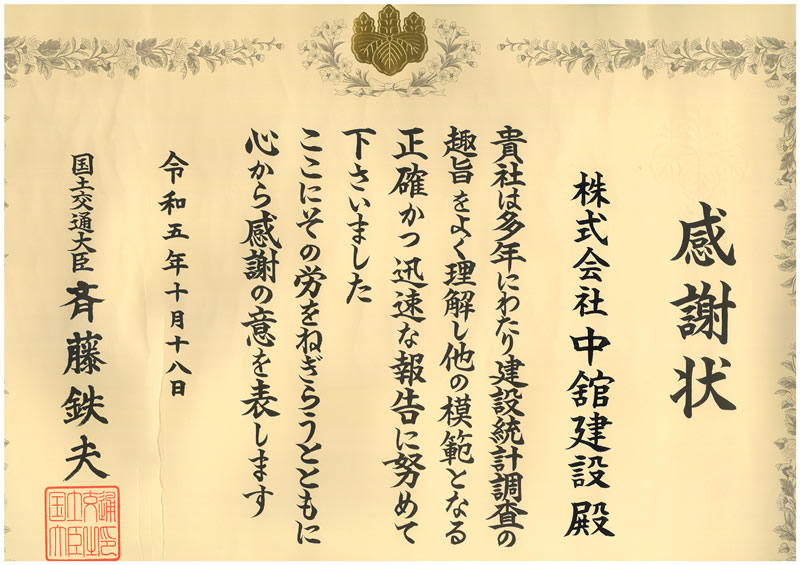 感謝状
株式会社中舘建設殿
貴社は多年にわたり建設統計調査の
趣旨をよく理解し他の模範となる
正確かつ迅速な報告に努めて
下さいました
ここにその労をねぎらうとともに
心から感謝の意を表します
令和五年十月十八日
国土交通大臣 斉藤鉄夫
国土交通
大臣之印